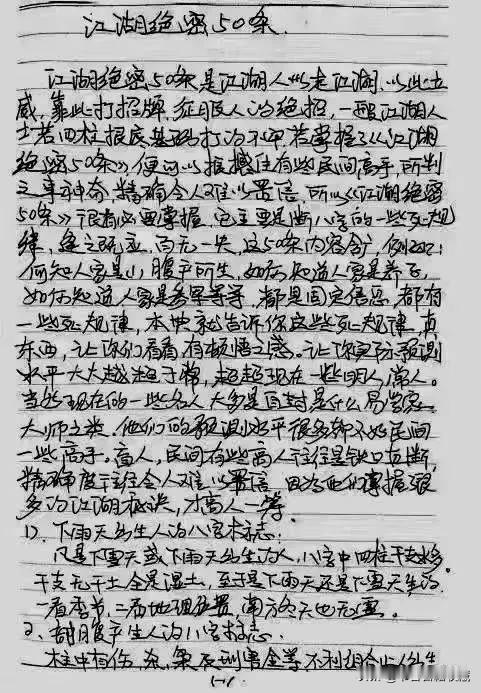 江湖绝密50条
江湖绝密50条是江湖人以走江湖,以此立
威,靠此打招牌,征服人的绝招,一般江湖人
士若四柱根底基础打的不牢,若掌握了《江湖
绝密50条》便可以摇撼住有些民间高手,所判
之事神奇,精确令人难以置信,所以《江湖绝密
50条》很有必要掌握,它主要是断八字的一些死规
律,逢之既应,百无一失,这50条内容含,例如:
何知人家是剖腹产所生,如何知道人家是养子,
如何知道人家是参军等等,都是固定信息,都有
一些死规律,本书就告诉你这些死规律,真
东西,让你们看看,有顿悟之感。让你实际预测
水平大大越超于常,超越现在一些明人,常人。
当然现在的一些名人大多是自封是什么易学家
大师之类,他们的预测水平很多都不如民间
一些高手。高人,民间有些高人往往是铁口直断,
精确度往往令人难以置信,因为他们掌握很
多的江湖秘诀,才高人一等。
1、下雨天出生人的八字标志:
凡是下雪天或下雨天出生的人,八字中四柱干支水多,
干支无干土全是湿土,至于是下雨天还是下雪天生的,
一看季节,二看地理位置,南方冬天也无雪。
2、剖腹产生人的八字标志:
柱中有伤、杀、枭及刑害全等不利组合此人出生